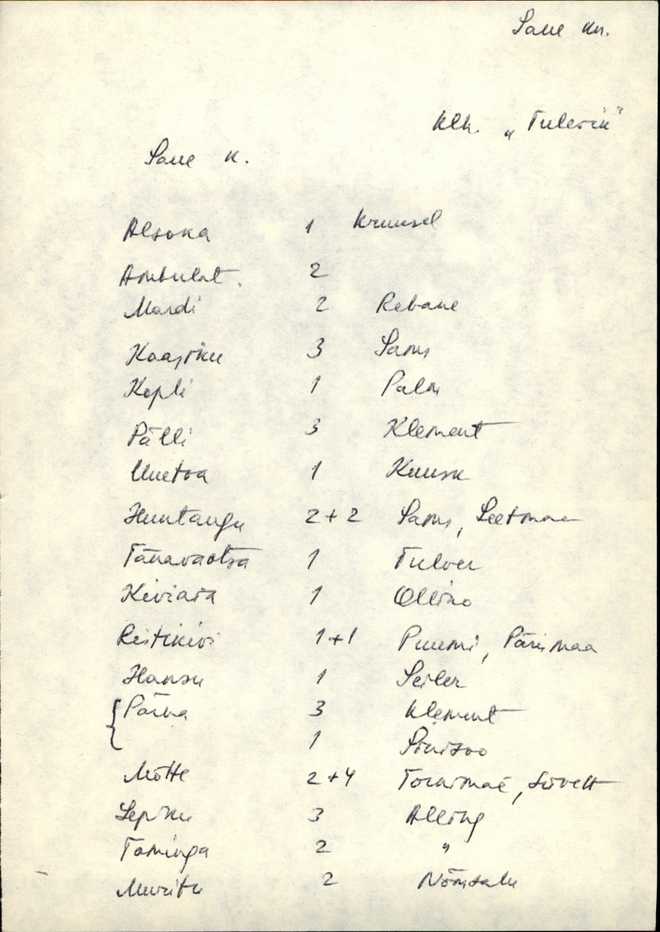 Saue kn.
Klk. „Tulevik"
Saue k.
Alsoka 1 Kruusel
Ambulat. 2
Mardi 2 Rebane
Kaasiku 3 Sams
Kopli 1 Palm
Pälli 3 Klement
Uuetoa 1 Kuusk
Huntaugu 2+2 Sams, Leetmaa
Tänavaotsa 1 Tulver
Kiviaia 1 Ollino
Ristikivi 1+1 Puumi, Pärismaa
Hansu 1 Seiler
Pärna 3 Klement
1 Sinisoo
Mõtte 2+4 Toomimäe,
Lepiku 3 Alling
Tominga 2 "
Muriku 2 Nõmsalu